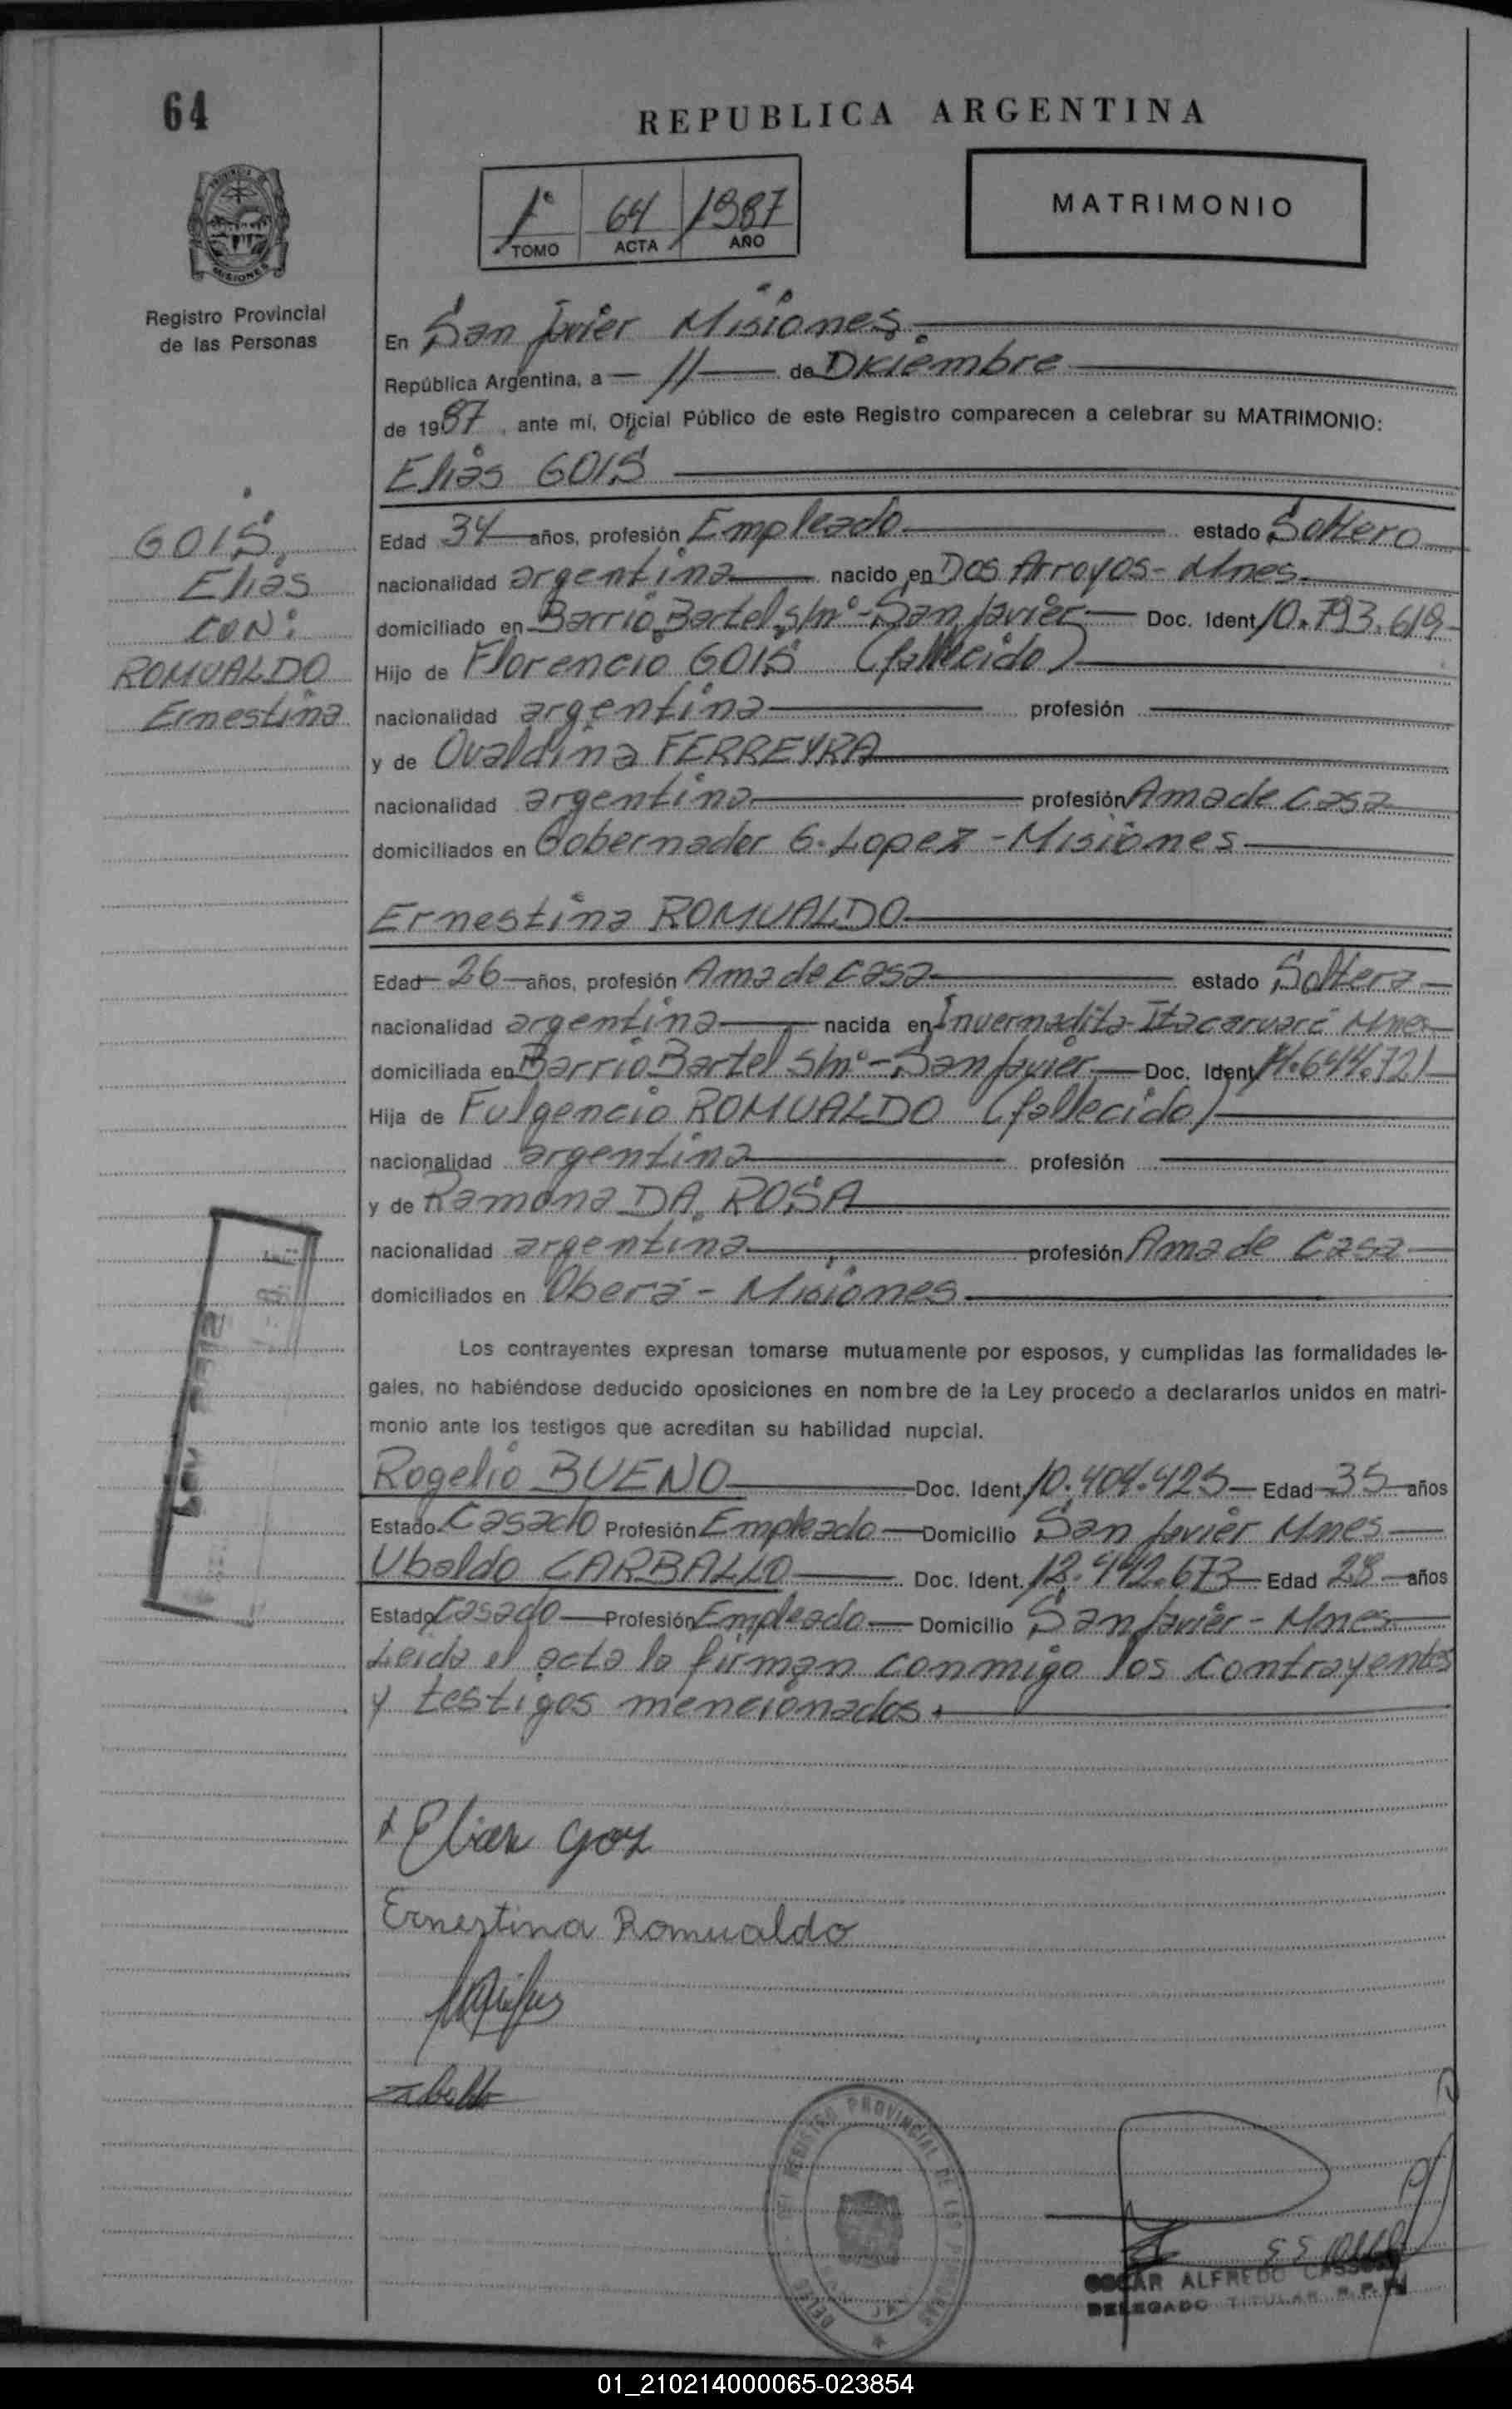 64
REPUBLICA ARGENTINA
1º 64 1987
TOMO ACTA AÑO
MATRIMONIO
PROVINCIA DE MISIONES
Registro Provincial
de las Personas
En San Javier Misiones
República Argentina, a 11 de Diciembre
de 1987, ante mí, Oficial Público de este Registro comparecen a celebrar su MATRIMONIO:
Elias GOIS
GOIS,
Elias
CON:
ROMUALDO
Ernestina
Edad 34 años, profesión Empleado estado Soltero
nacionalidad argentina nacido en Dos Arroyos - Mnes
domiciliado en Barrio Bartel s/nº - San Javier Doc. Ident. 10.793.619
Hijo de Florencio GOIS (fallecido)
nacionalidad argentina profesión
y de Ovaldina FERREYRA
nacionalidad argentina profesión Ama de Casa
domiciliados en Gobernador G. Lopez - Misiones
Ernestina ROMUALDO
Edad 26 años, profesión Ama de Casa estado Soltera
nacionalidad argentina nacida en Invernadita - Itacaruaré Mnes
domiciliada en Barrio Bartel s/nº - San Javier Doc. Ident. 14.644.721
Hija de Fulgencio ROMUALDO (fallecido)
nacionalidad argentina profesión
y de Ramona DA ROSA
nacionalidad argentina profesión Ama de Casa
domiciliados en Oberá - Misiones
Los contrayentes expresan tomarse mutuamente por esposos, y cumplidas las formalidades le-
gales, no habiéndose deducido oposiciones en nombre de la Ley procedo a declararlos unidos en matri-
monio ante los testigos que acreditan su habilidad nupcial.
Rogelio BUENO Doc. Ident. 10.404.425 Edad 35 años
Estado Casado Profesión Empleado Domicilio San Javier Mnes
Ubaldo CARBALLO Doc. Ident. 12.442.673 Edad 28 años
Estado Casado Profesión Empleado Domicilio San Javier - Mnes
Leida el acta la firman conmigo los contrayentes
y testigos mencionados.
Elias Goy
Ernestina Romualdo
REGISTRO PROVINCIAL DE LAS PERSONAS
OSCAR ALFREDO
DELEGADO TITULAR R.P.P.
01_210214000065-023854